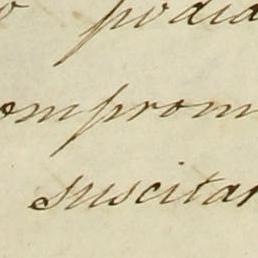 o podia
omprom
suscitar